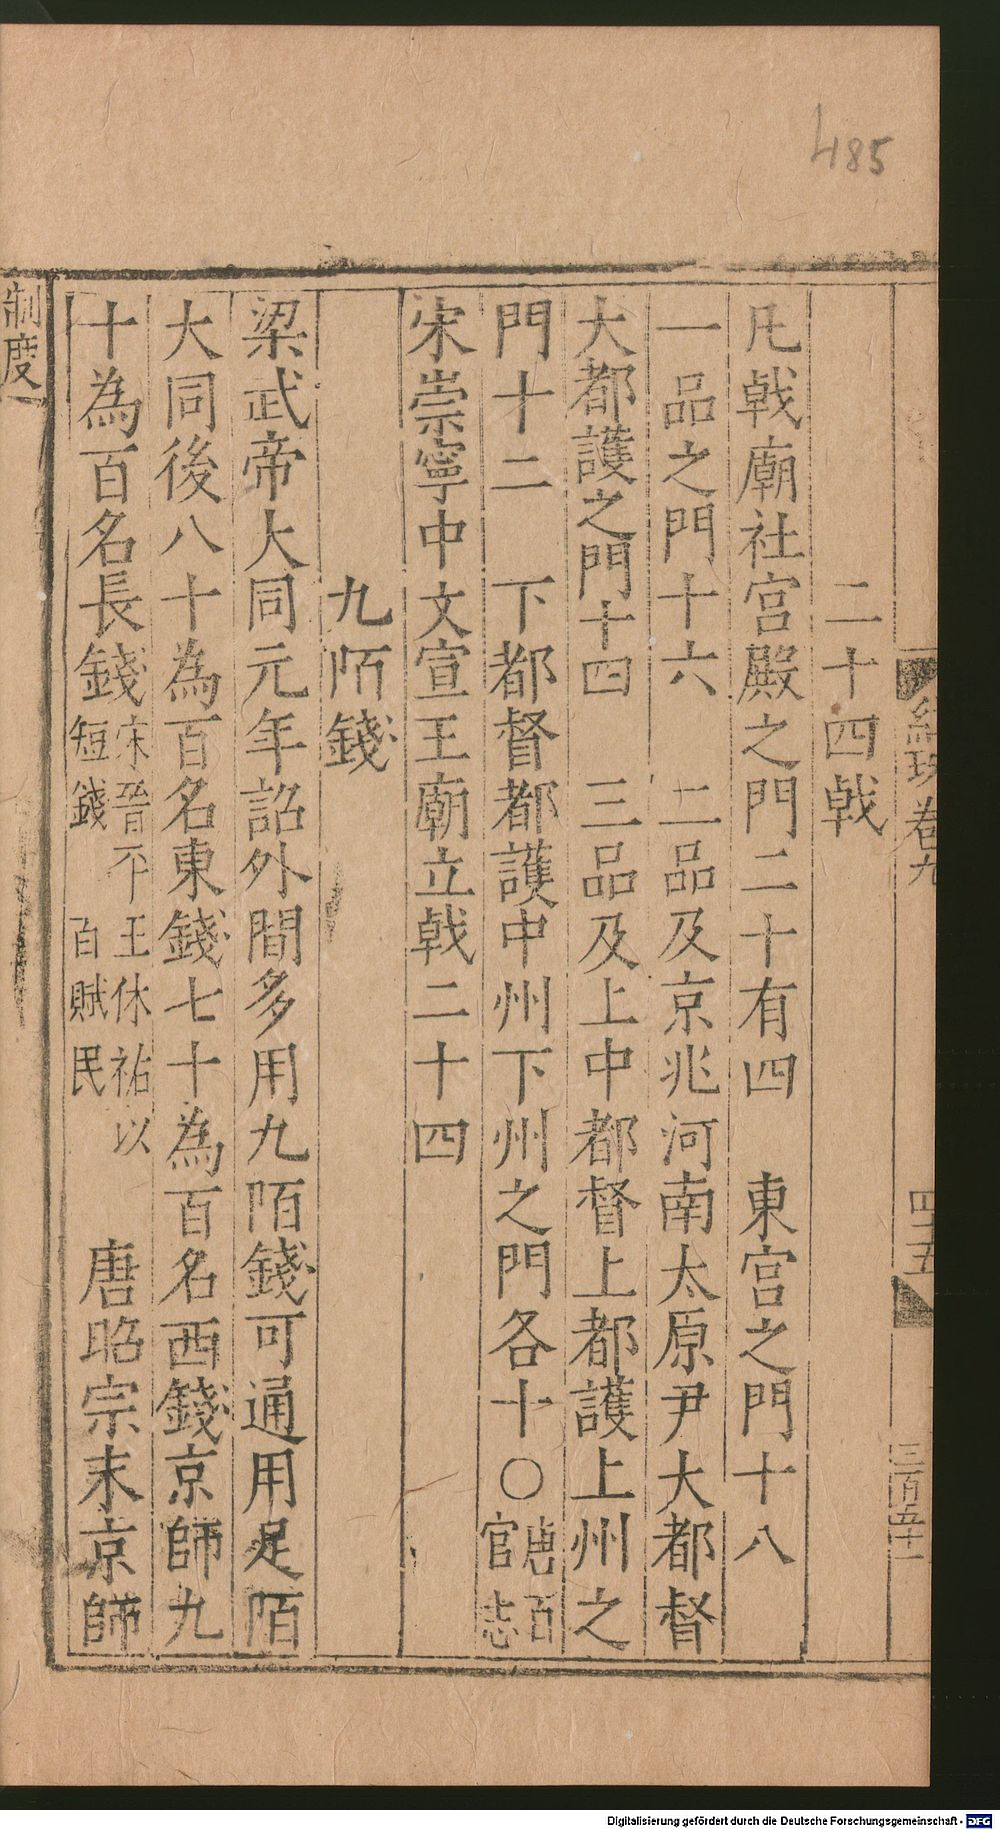 485
紺珠卷九
四十五
三百五十一
二十四戟
凡戟廟社宮殿之門二十有四　東宮之門十八
一品之門十六　二品及京兆河南太原尹大都督
大都護之門十四　三品及上中都督上都護上州之
門十二　下都督都護中州下州之門各十○唐百官志
宋崇寧中文宣王廟立戟二十四
九陌錢
梁武帝大同元年詔外間多用九陌錢可通用足陌
大同後八十為百名東錢七十為百名西錢京師九
十為百名長錢宋晉平王休祐以短錢百賦民　唐昭宗末京師
制度一
Digitalisierung gefördert durch die Deutsche Forschungsgemeinschaft - DFG